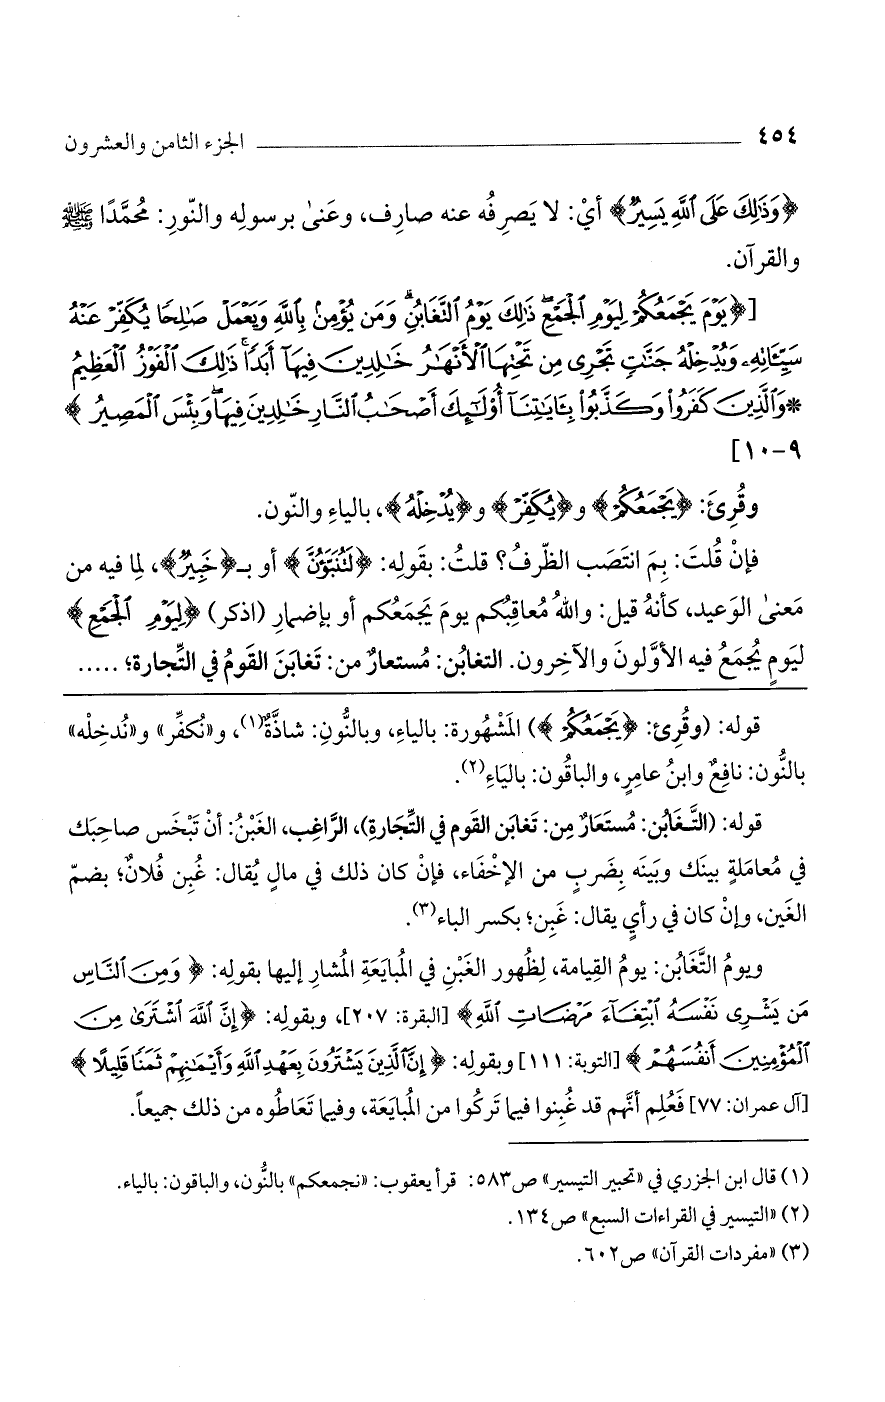 ٤٥٤ الجزء الثامن والعشرون
﴿وَذَٰلِكَ عَلَى ٱللَّهِ يَسِيرٌ﴾ أيْ: لا يَصرِفُه عنه صارِف، وعَنىٰ برسولِه والنّورِ: مُحمَّدًا ﷺ
والقرآن.
[﴿يَوْمَ يَجْمَعُكُمْ لِيَوْمِ ٱلْجَمْعِ ۖ ذَٰلِكَ يَوْمُ ٱلتَّغَابُنِ ۗ وَمَن يُؤْمِنۢ بِٱللَّهِ وَيَعْمَلْ صَٰلِحًا يُكَفِّرْ عَنْهُ
سَيِّـَٔاتِهِۦ وَيُدْخِلْهُ جَنَّٰتٍ تَجْرِى مِن تَحْتِهَا ٱلْأَنْهَٰرُ خَٰلِدِينَ فِيهَآ أَبَدًا ۚ ذَٰلِكَ ٱلْفَوْزُ ٱلْعَظِيمُ
* وَٱلَّذِينَ كَفَرُوا۟ وَكَذَّبُوا۟ بِـَٔايَٰتِنَآ أُو۟لَٰٓئِكَ أَصْحَٰبُ ٱلنَّارِ خَٰلِدِينَ فِيهَا ۖ وَبِئْسَ ٱلْمَصِيرُ﴾
٩-١٠]
وقُرِئَ: ﴿يَجْمَعُكُمْ﴾ و﴿يُكَفِّرْ﴾ و﴿يُدْخِلْهُ﴾، بالياءِ والنّون.
فإنْ قُلتَ: بِمَ انتَصَب الظّرفُ؟ قلتُ: بقَولِه: ﴿لَتُنَبَّؤُنَّ﴾ أو بـ﴿خَبِيرٌ﴾، لِما فيه من
مَعنىٰ الوَعيد، كأنهُ قيل: واللهُ مُعاقِبُكم يومَ يَجمَعُكم أو بإضمارِ (اذكر) ﴿لِيَوْمِ ٱلْجَمْعِ﴾
ليَومٍ يُجمَعُ فيه الأوَّلونَ والآخِرون. التغابُن: مُستعارٌ من: تَغابَنَ القَومُ في التِّجارة؛ .....
قوله: (وقُرِئ: ﴿يَجْمَعُكُمْ﴾) المَشْهُورة: بالياءِ، وبالنُّونِ: شاذَّةٌ(١)، و«نُكفِّر» و«نُدخِلْه»
بالنُّون: نافِعٌ وابنُ عامِرٍ، والباقُون: باليَاءِ(٢).
قوله: (التَّغَابُن: مُستَعَارٌ مِن: تَغابَن القَوم في التِّجَارةِ)، الرَّاغِب، الغَبْنُ: أنْ تَبْخَس صاحِبَك
في مُعامَلةٍ بينَك وبَينَه بِضَربٍ من الإخْفَاء، فإنْ كان ذلك في مالٍ يُقال: غُبِن فُلانٌ؛ بضمّ
الغَين، وإنْ كان في رأيٍ يقال: غَبِن؛ بكسر الباء(٣).
ويومُ التَّغَابُن: يومُ القِيامة، لِظُهور الغَبْنِ في المُبايَعَةِ المُشارِ إليها بقولِه: ﴿وَمِنَ ٱلنَّاسِ
مَن يَشْرِى نَفْسَهُ ٱبْتِغَآءَ مَرْضَاتِ ٱللَّهِ﴾ [البقرة: ٢٠٧]، وبقولِه: ﴿إِنَّ ٱللَّهَ ٱشْتَرَىٰ مِنَ
ٱلْمُؤْمِنِينَ أَنفُسَهُمْ﴾ [التوبة: ١١١] وبقولِه: ﴿إِنَّ ٱلَّذِينَ يَشْتَرُونَ بِعَهْدِ ٱللَّهِ وَأَيْمَٰنِهِمْ ثَمَنًا قَلِيلًا﴾
[آل عمران: ٧٧] فَعُلِم أنَّهم قد غُبِنوا فيما تَركُوا من المُبايَعَة، وفيما تَعَاطَوه من ذلك جميعاً.
(١) قال ابن الجزري في «تحبير التيسير» ص٥٨٣: قرأ يعقوب: «نجمعكم» بالنُّون، والباقون: بالياء.
(٢) «التيسير في القراءات السبع» ص١٣٤.
(٣) «مفردات القرآن» ص٦٠٢.